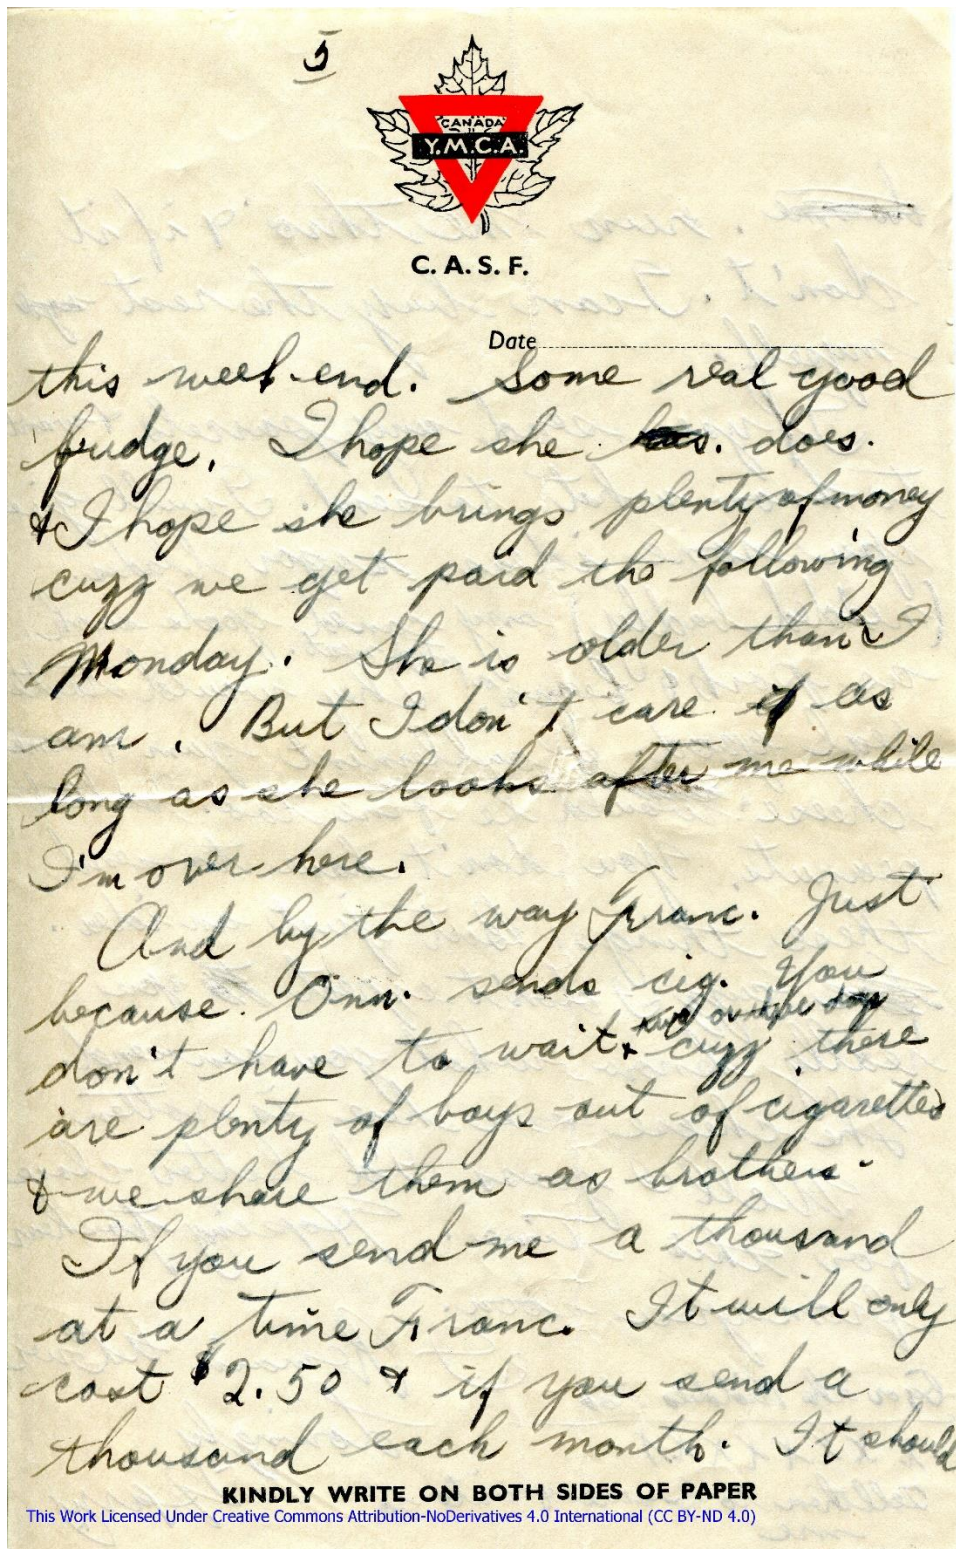 5
CANADA
Y.M.C.A.
C. A. S. F.
Date
this week-end. Some real good
fudge. I hope she does.
& I hope she brings plenty of money
cuzz we get paid the following
Monday. She is older than I
am. But I don't care as
long as she looks after me while
I'm over here.
And by the way Franc. Just
because Onn. sends cig. You
don't have to wait. cuzz there
are plenty of boys out of cigarettes
& we share them as brothers.
If you send me a thousand
at a time Franc. It will only
cost $2.50 & if you send a
thousand each month. It should
KINDLY WRITE ON BOTH SIDES OF PAPER
This Work Licensed Under Creative Commons Attribution-NoDerivatives 4.0 International (CC BY-ND 4.0)